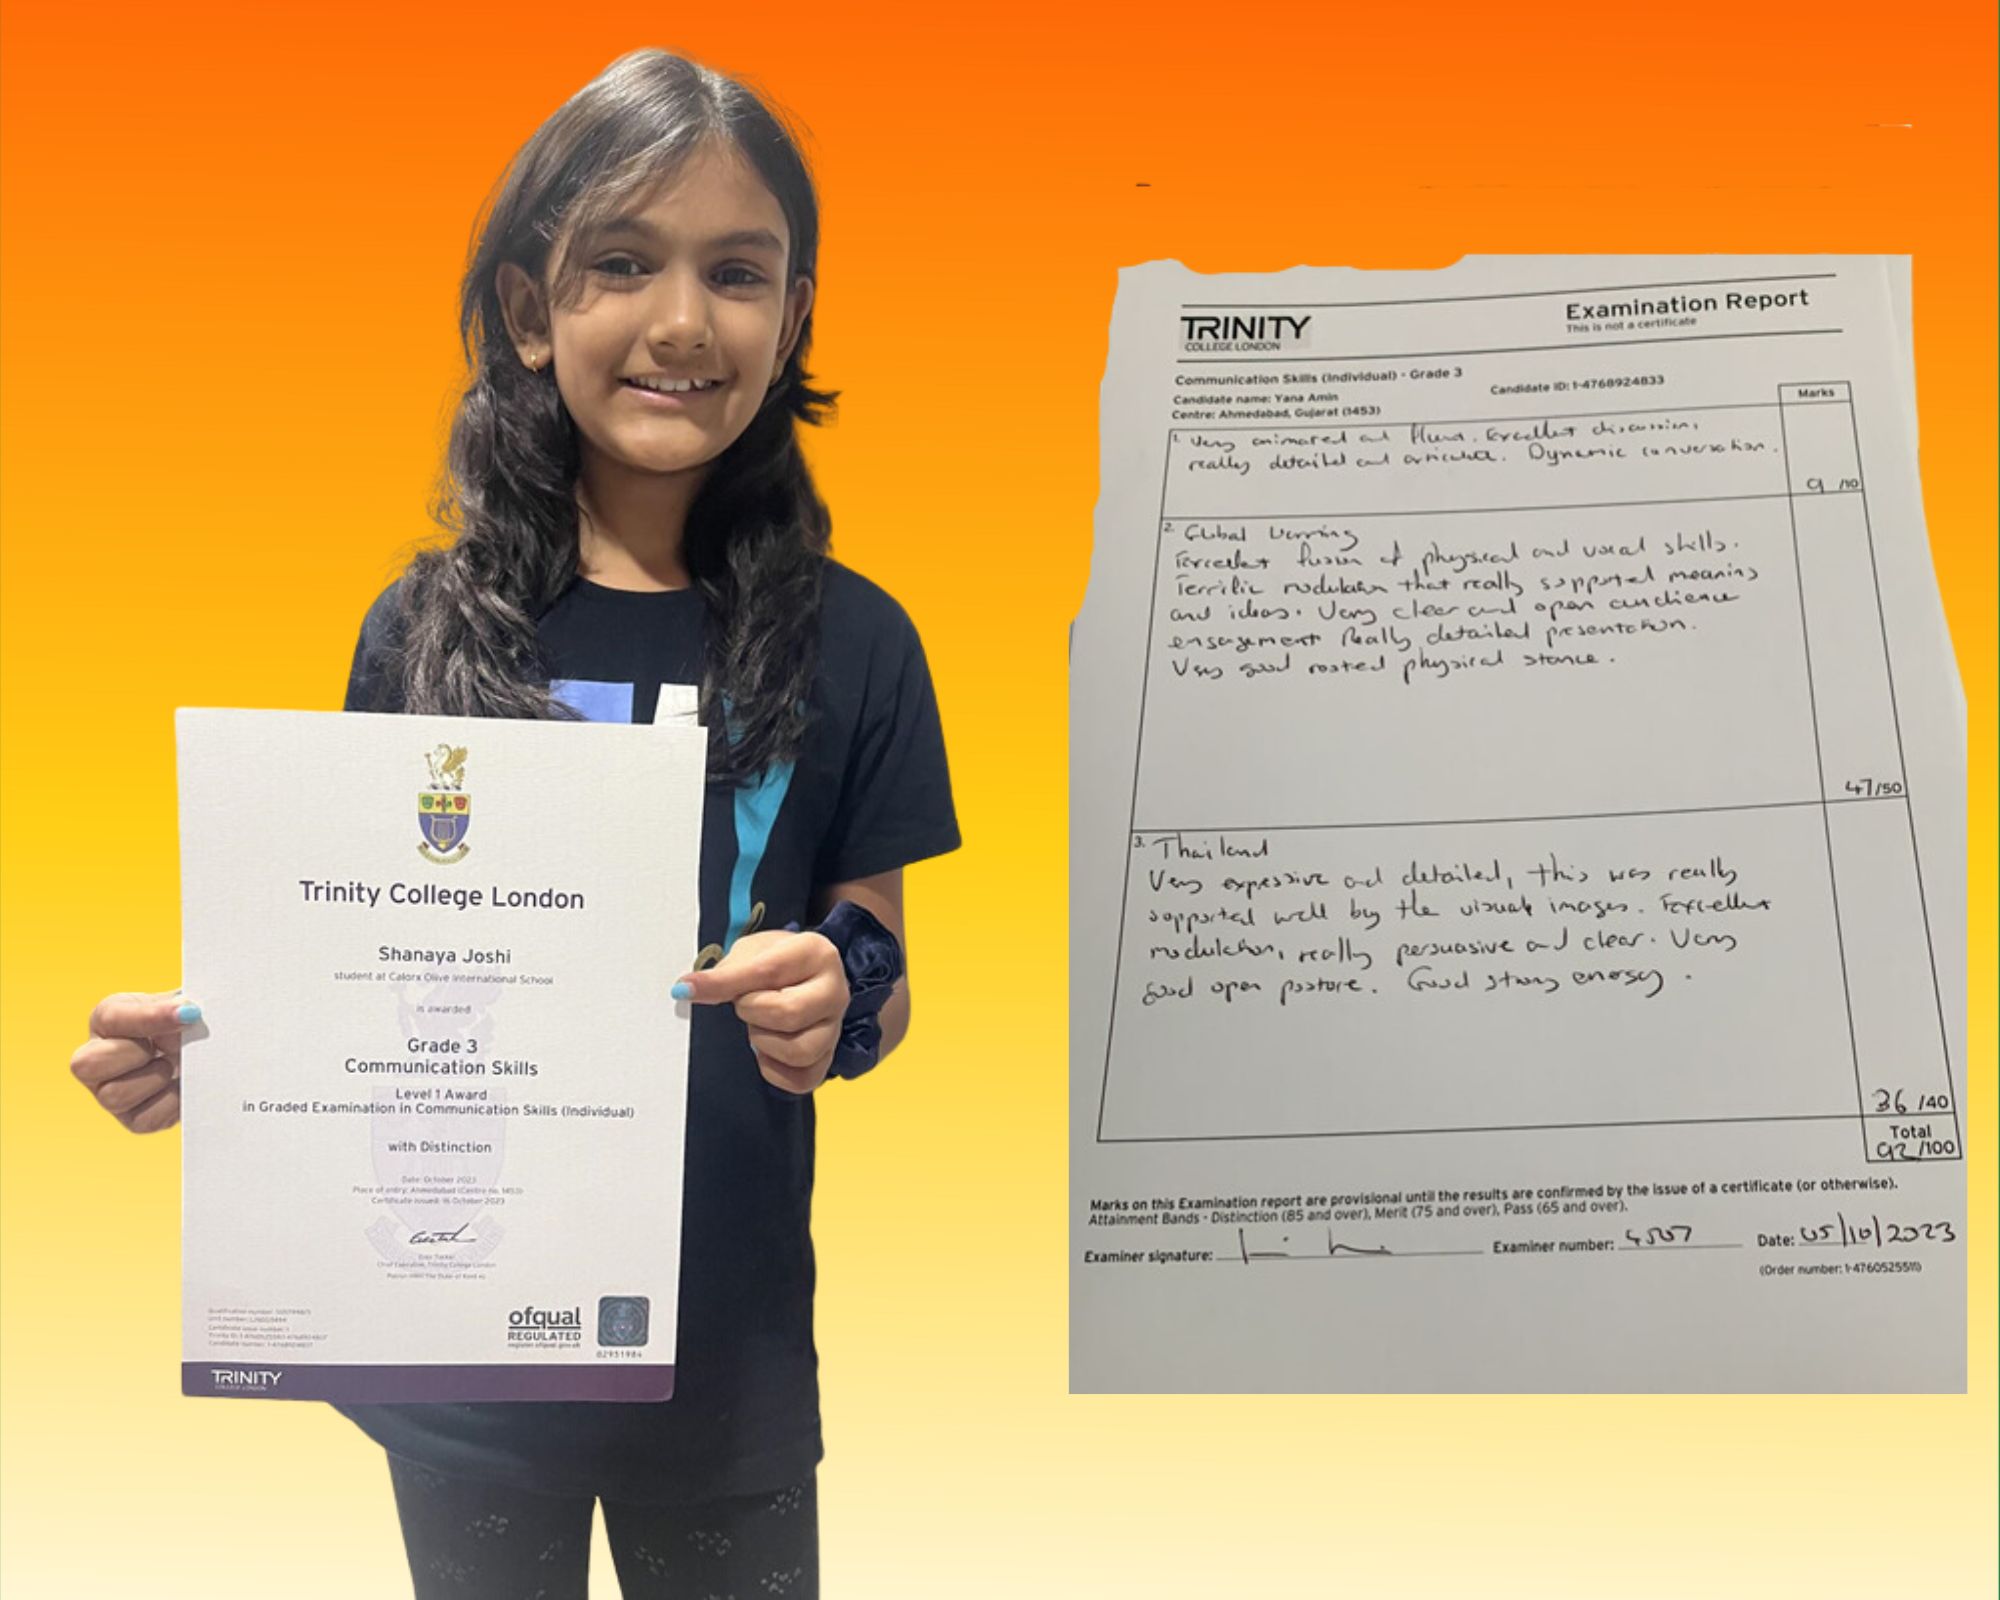 Trinity College London
Shanaya Joshi
student at Calorx Olive International School
is awarded
Grade 3
Communication Skills
Level 1 Award
in Graded Examination in Communication Skills (Individual)
with Distinction
Date: October 2023
Place of entry: Ahmedabad (Centre no. 1453)
Certificate issued: 16 October 2023
Chief Executive, Trinity College London
Patron HRH The Duke of Kent KG
ofqual
REGULATED
register.ofqual.gov.uk
02951984
TRINITY
COLLEGE LONDON
TRINITY
COLLEGE LONDON
Examination Report
This is not a certificate
Communication Skills (Individual) - Grade 3
Candidate ID: 1-4768924833
Candidate name: Yana Amin
Centre: Ahmedabad, Gujarat (1453)
Marks
1. Very animated and fluid. Excellent discussion,
really detailed and articulate. Dynamic conversation.
9 /10
2. Global Warming
Excellent fusion of physical and vocal skills.
Terrific modulation that really supported meaning
and ideas. Very clear and open audience
engagement Really detailed presentation.
Very good rooted physical stance.
47/50
3. Thailand
Very expressive and detailed, this was really
supported well by the visual images. Excellent
modulation, really persuasive and clear. Very
good open posture. Good strong energy.
36 /40
Total
92 /100
Marks on this Examination report are provisional until the results are confirmed by the issue of a certificate (or otherwise).
Attainment Bands - Distinction (85 and over), Merit (75 and over), Pass (65 and over).
Examiner signature:
Examiner number: 4507
Date: 05/10/2023
(Order number: 1-4760525511)